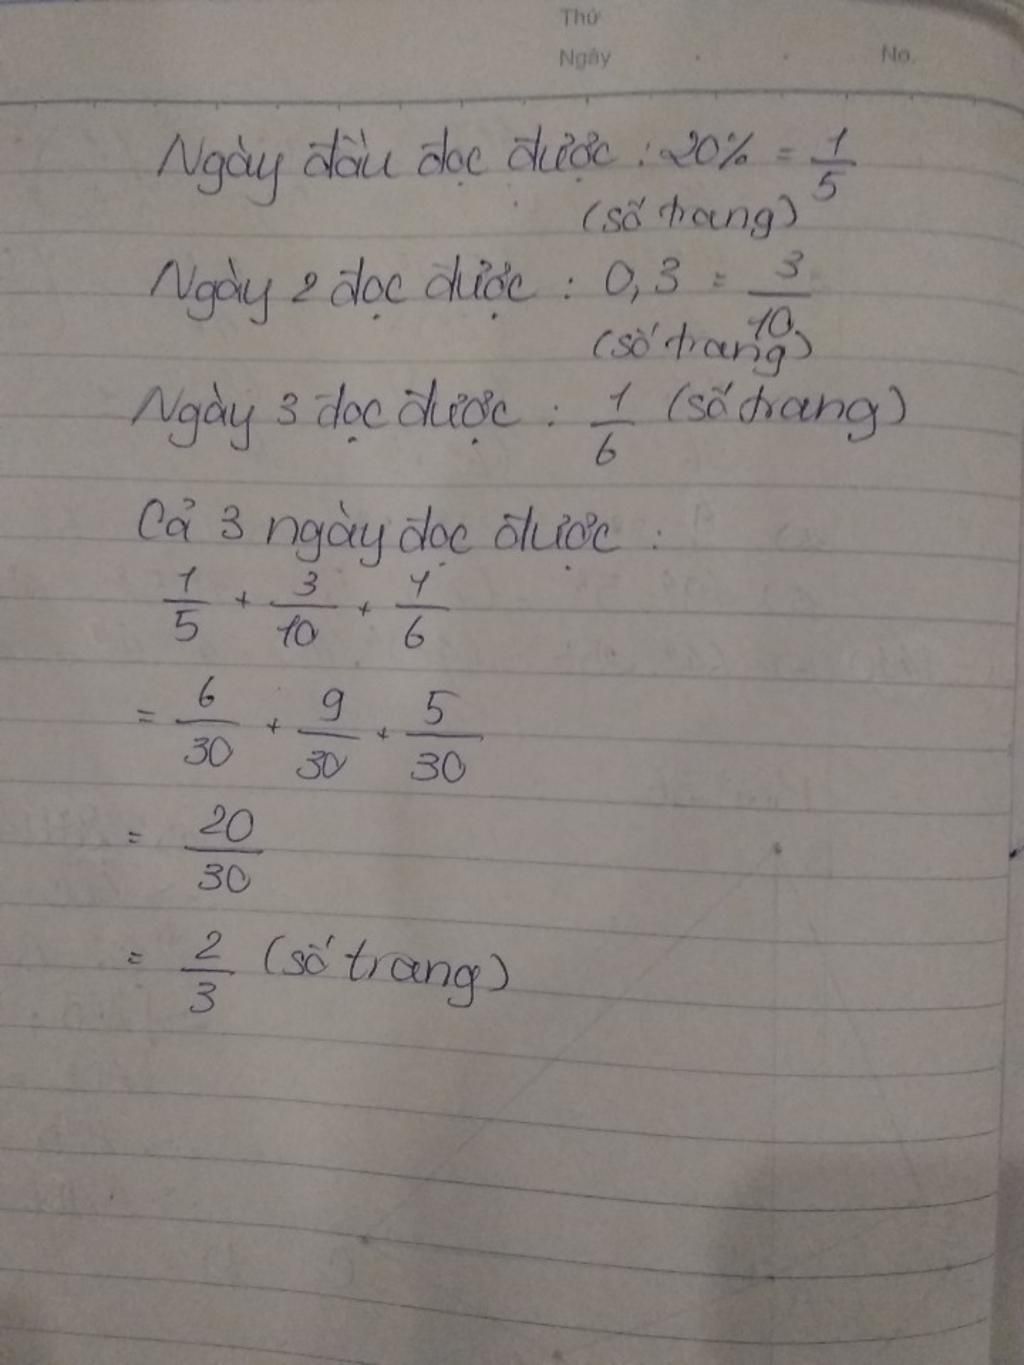 Thứ
Ngày No.
Ngày đầu đọc được : 20% = 1/5
(số trang)
Ngày 2 đọc được : 0,3 = 3/10
(số trang)
Ngày 3 đọc được : 1/6 (số trang)
Cả 3 ngày đọc được :
1/5 + 3/10 + 1/6
= 6/30 + 9/30 + 5/30
= 20/30
= 2/3 (số trang)